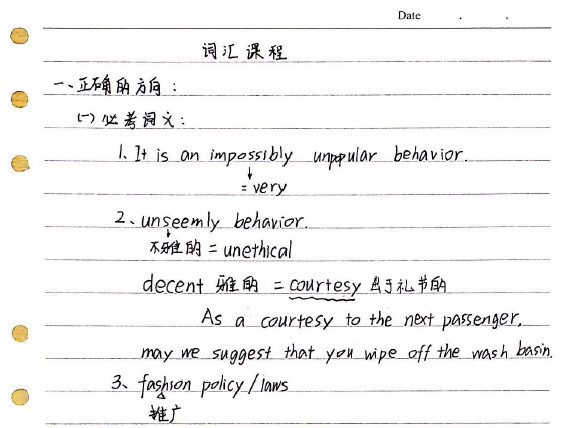 Date . .
词汇课程
一、正确的方向：
(一) 必考词义：
1、It is an impossibly unpopular behavior.
↓
= very
2、unseemly behavior.
↓
不雅的 = unethical
decent 雅的 = courtesy 出于礼节的
As a courtesy to the next passenger,
may we suggest that you wipe off the wash basin.
3、fashion policy / laws
推广